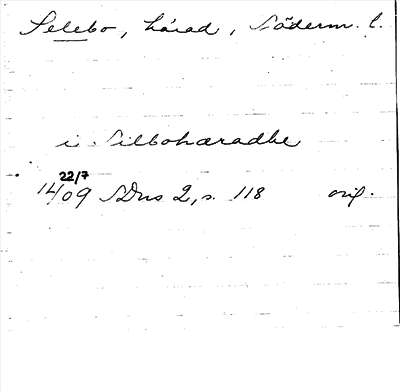 Selebo, härad, Söderm. l.
i Silbohæradhe
22/7
14/09 SDns 2, s. 118 orig.